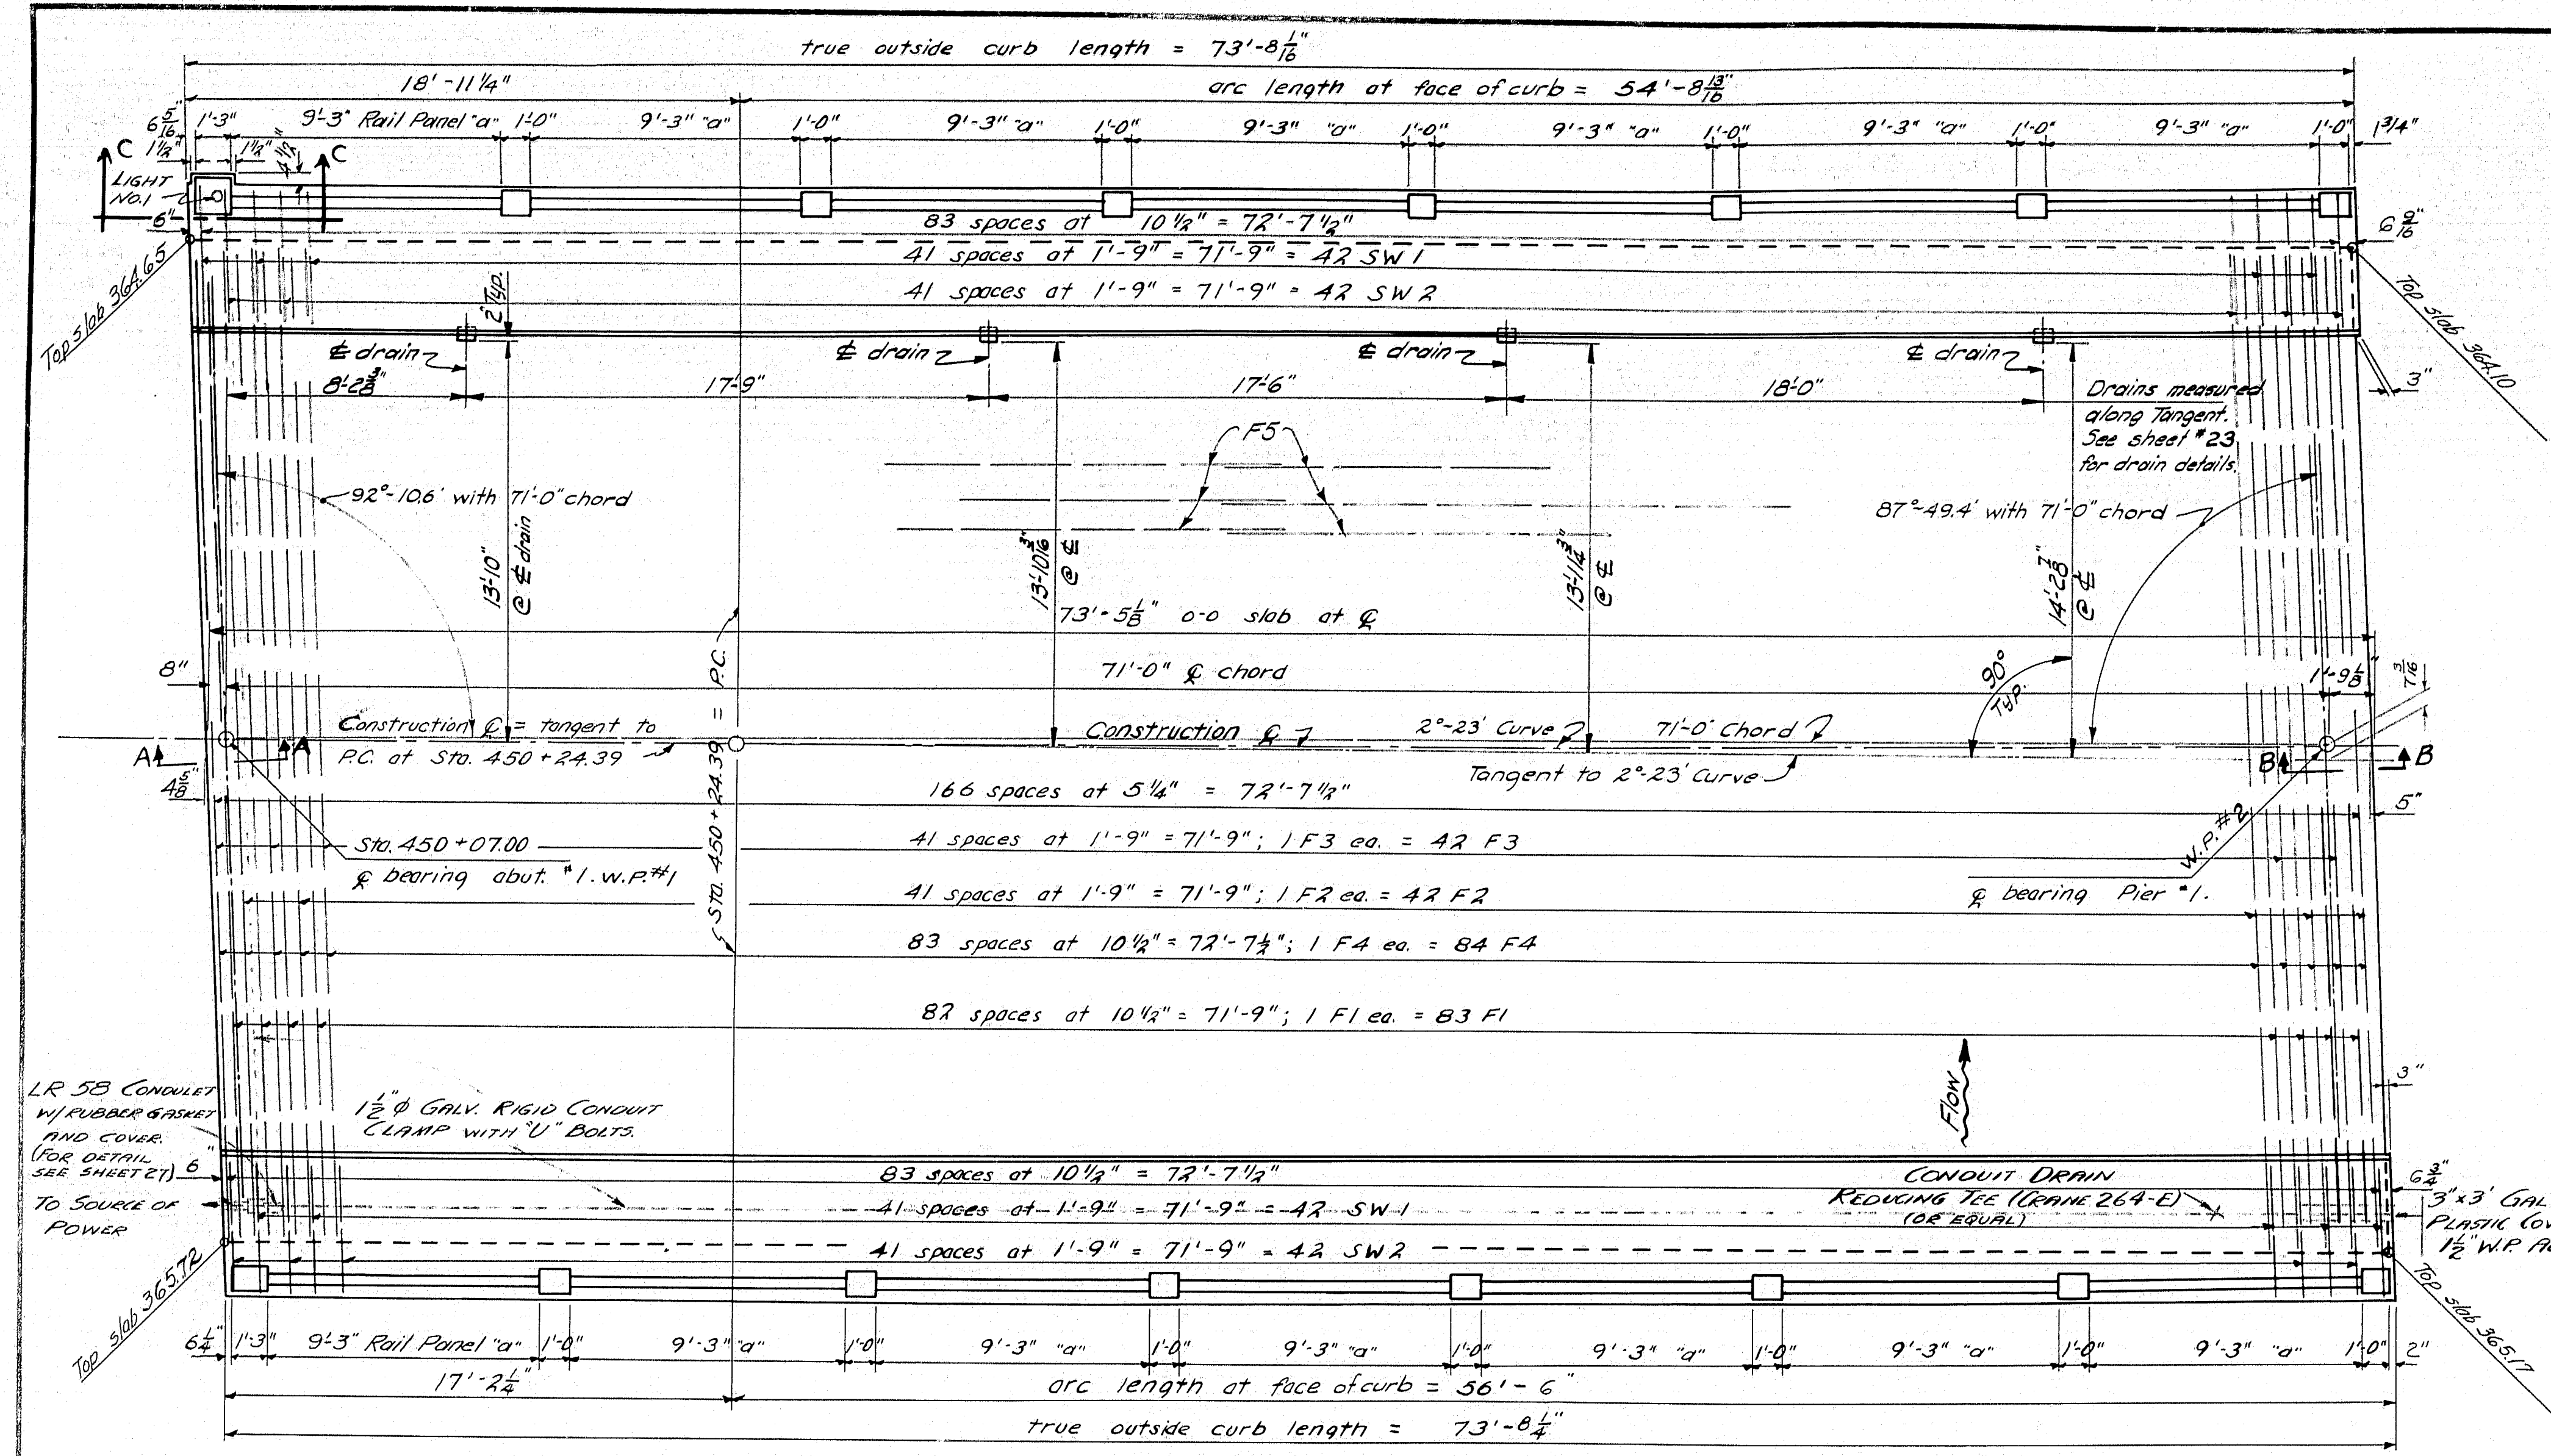 true outside curb length = 73'-8 1/16"
18'-11 1/4"
arc length at face of curb = 54'-8 13/16"
6 5/16" 1'-3" 9'-3" Rail Panel "a" 1'-0" 9'-3" "a" 1'-0" 9'-3" "a" 1'-0" 9'-3" "a" 1'-0" 9'-3" "a" 1'-0" 9'-3" "a" 1'-0" 9'-3" "a" 1'-0" 1 3/4"
C 1 1/2" 1 1/2" 4 1/2" C
LIGHT
NO.1
6"
83 spaces at 10 1/2" = 72'-7 1/2"
6 9/16"
41 spaces at 1'-9" = 71'-9" = 42 SW 1
Top slab 364.65
2" Typ.
41 spaces at 1'-9" = 71'-9" = 42 SW 2
Top slab 364.10
℄ drain ℄ drain ℄ drain ℄ drain
8'-2 3/8" 17'-9" 17'-6" 18'-0"
3"
Drains measured
along Tangent.
See sheet #23
for drain details.
F5
92°-10.6' with 71'-0" chord
87°-49.4' with 71'-0" chord
13'-10"
@ ℄ drain
13'-10 3/16"
@ ℄
13'-11 3/4"
@ ℄
14'-2 7/8"
@ ℄
73'-5 1/8" o-o slab at ℄
8"
71'-0" ℄ chord
90°
Typ.
1'-9 1/8"
7 3/16"
Construction ℄ = tangent to
P.C. at Sta. 450+24.39
Construction ℄
2°-23' Curve
71'-0" Chord
Tangent to 2°-23' Curve
A A
B B
4 5/8"
Sta. 450+24.39 = P.C.
166 spaces at 5 1/4" = 72'-7 1/2"
5"
Sta. 450+07.00
℄ bearing abut. #1. W.P.#1
41 spaces at 1'-9" = 71'-9"; 1 F3 ea. = 42 F3
W.P.#2
℄ bearing Pier #1.
41 spaces at 1'-9" = 71'-9"; 1 F2 ea. = 42 F2
83 spaces at 10 1/2" = 72'-7 1/2"; 1 F4 ea. = 84 F4
82 spaces at 10 1/2" = 71'-9"; 1 F1 ea. = 83 F1
Flow
3"
LR 58 CONDULET
W/RUBBER GASKET
AND COVER.
(FOR DETAIL
SEE SHEET 27)
6"
TO SOURCE OF
POWER
1 1/2" ϕ GALV. RIGID CONDUIT
CLAMP WITH "U" BOLTS.
83 spaces at 10 1/2" = 72'-7 1/2"
41 spaces at 1'-9" = 71'-9" = 42 SW 1
41 spaces at 1'-9" = 71'-9" = 42 SW2
CONDUIT DRAIN
REDUCING TEE (CRANE 264-E)
(OR EQUAL)
6 3/4"
3"x3' GAL
PLASTIC CO
1 1/2" W.P.
Top slab 365.72
Top slab 365.17
6 1/4" 1'-3" 9'-3" Rail Panel "a" 1'-0" 9'-3" "a" 1'-0" 9'-3" "a" 1'-0" 9'-3" "a" 1'-0" 9'-3" "a" 1'-0" 9'-3" "a" 1'-0" 9'-3" "a" 1'-0" 2"
17'-2 1/4"
arc length at face of curb = 56'-6"
true outside curb length = 73'-8 1/4"